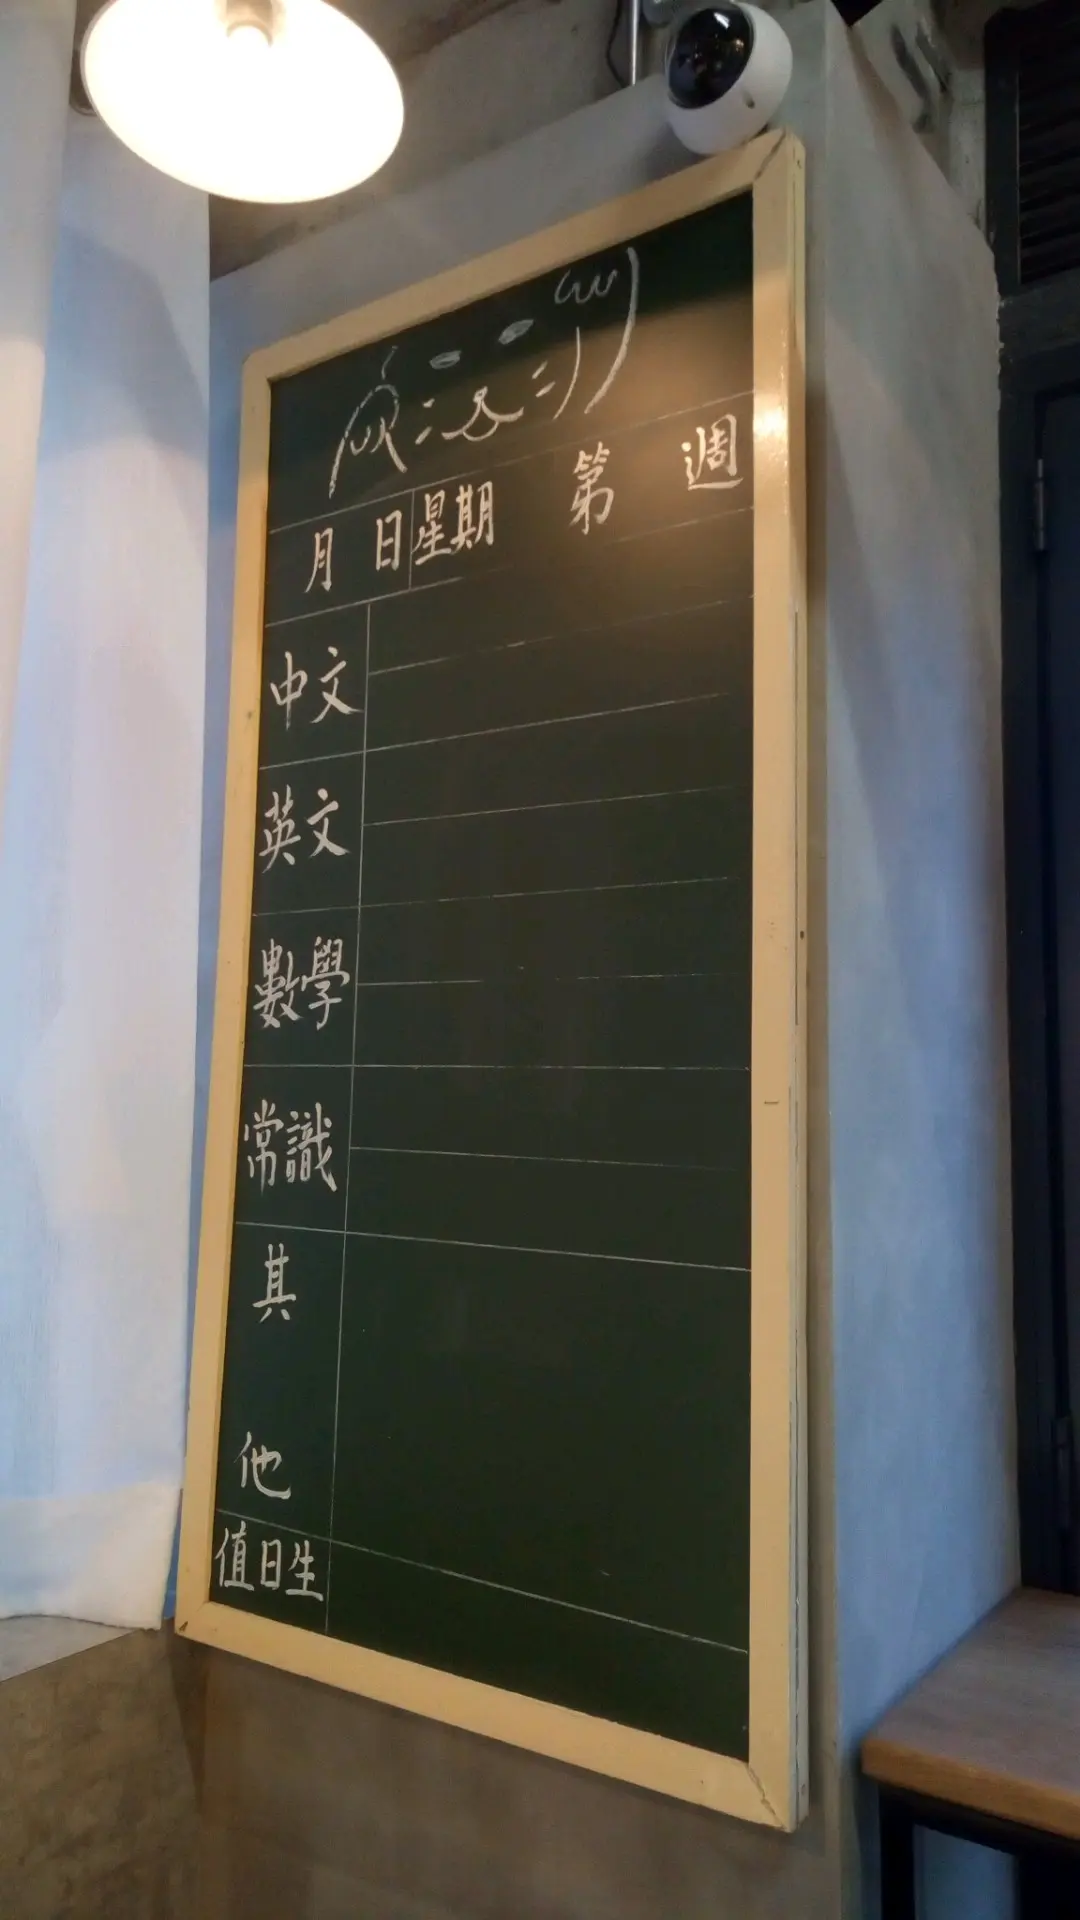 月 日 星期 第 週
中文
英文
數學
常識
其
他
值日生